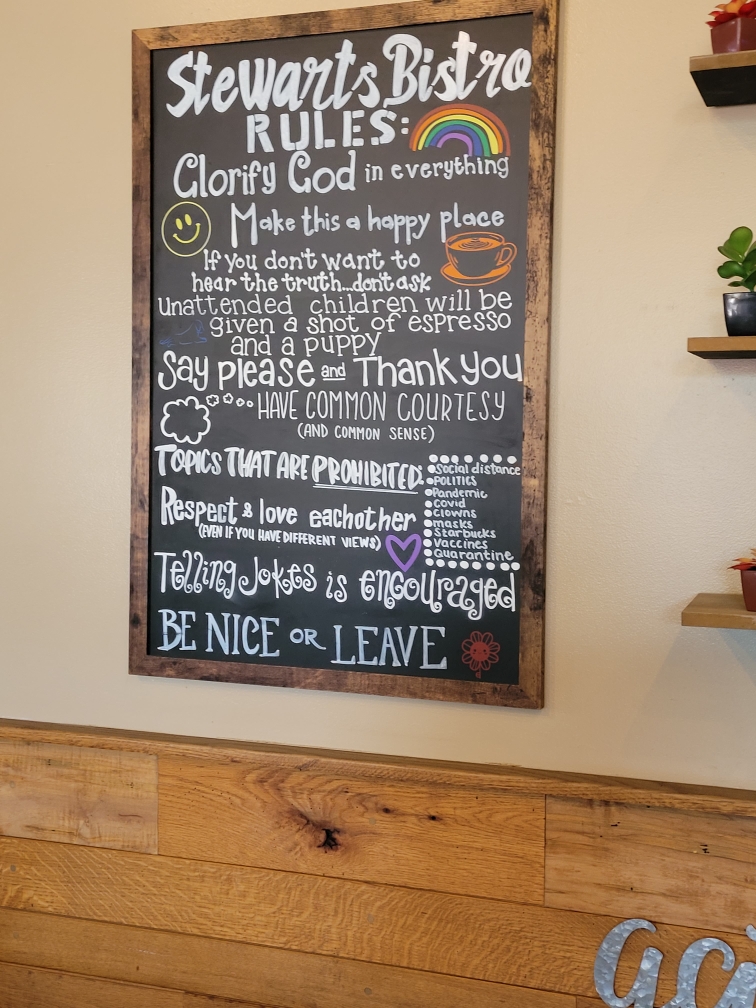 Stewarts Bistro
RULES:
Glorify God in everything
Make this a happy place
If you don't want to
hear the truth...don't ask
unattended children will be
given a shot of espresso
and a puppy
Say please and Thank you
HAVE COMMON COURTESY
(AND COMMON SENSE)
TOPICS THAT ARE PROHIBITED:
Social distance
POLITICS
Pandemic
Covid
Clowns
masks
Starbucks
Vaccines
Quarantine
Respect & love eachother
(EVEN IF YOU HAVE DIFFERENT VIEWS)
Telling Jokes is encouraged
BE NICE OR LEAVE